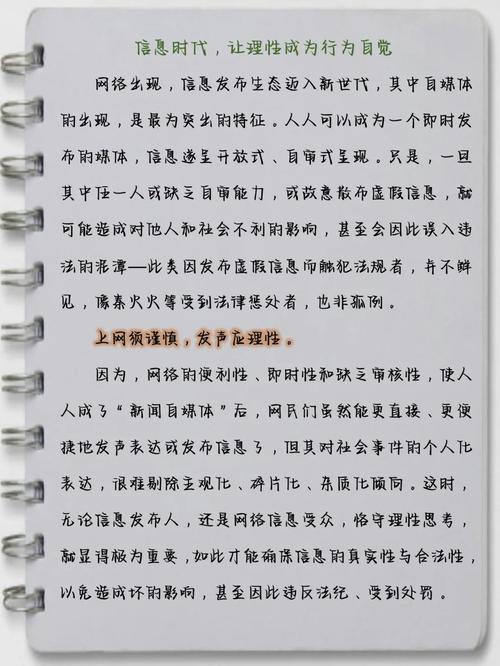 信息时代，让理性成为行为自觉
网络出现，信息发布生态迈入新世代，其中自媒体
的出现，是最为突出的特征。人人可以成为一个即时发
布的媒体，信息遂呈开放式、自审式呈现。只是，一旦
其中任一人或缺乏自审能力，或故意散布虚假信息，就
可能造成对他人和社会不利的影响，甚至会因此误入违
法的泥潭—此类因发布虚假信息而触犯法规者，并不鲜
见，像秦火火等受到法律惩处者，也非孤例。
上网须谨慎，发声应理性。
因为，网络的便利性、即时性和缺乏审核性，使人
人成了“新闻自媒体”后，网民们虽然能更直接、更便
捷地发声表达或发布信息了，但其对社会事件的个人化
表达，很难剔除主观化、碎片化、杂质化倾向。这时，
无论信息发布人，还是网络信息受众，恪守理性思考，
就显得极为重要，如此才能确保信息的真实性与合法性，
以免造成坏的影响，甚至因此违反法纪、受到处罚。